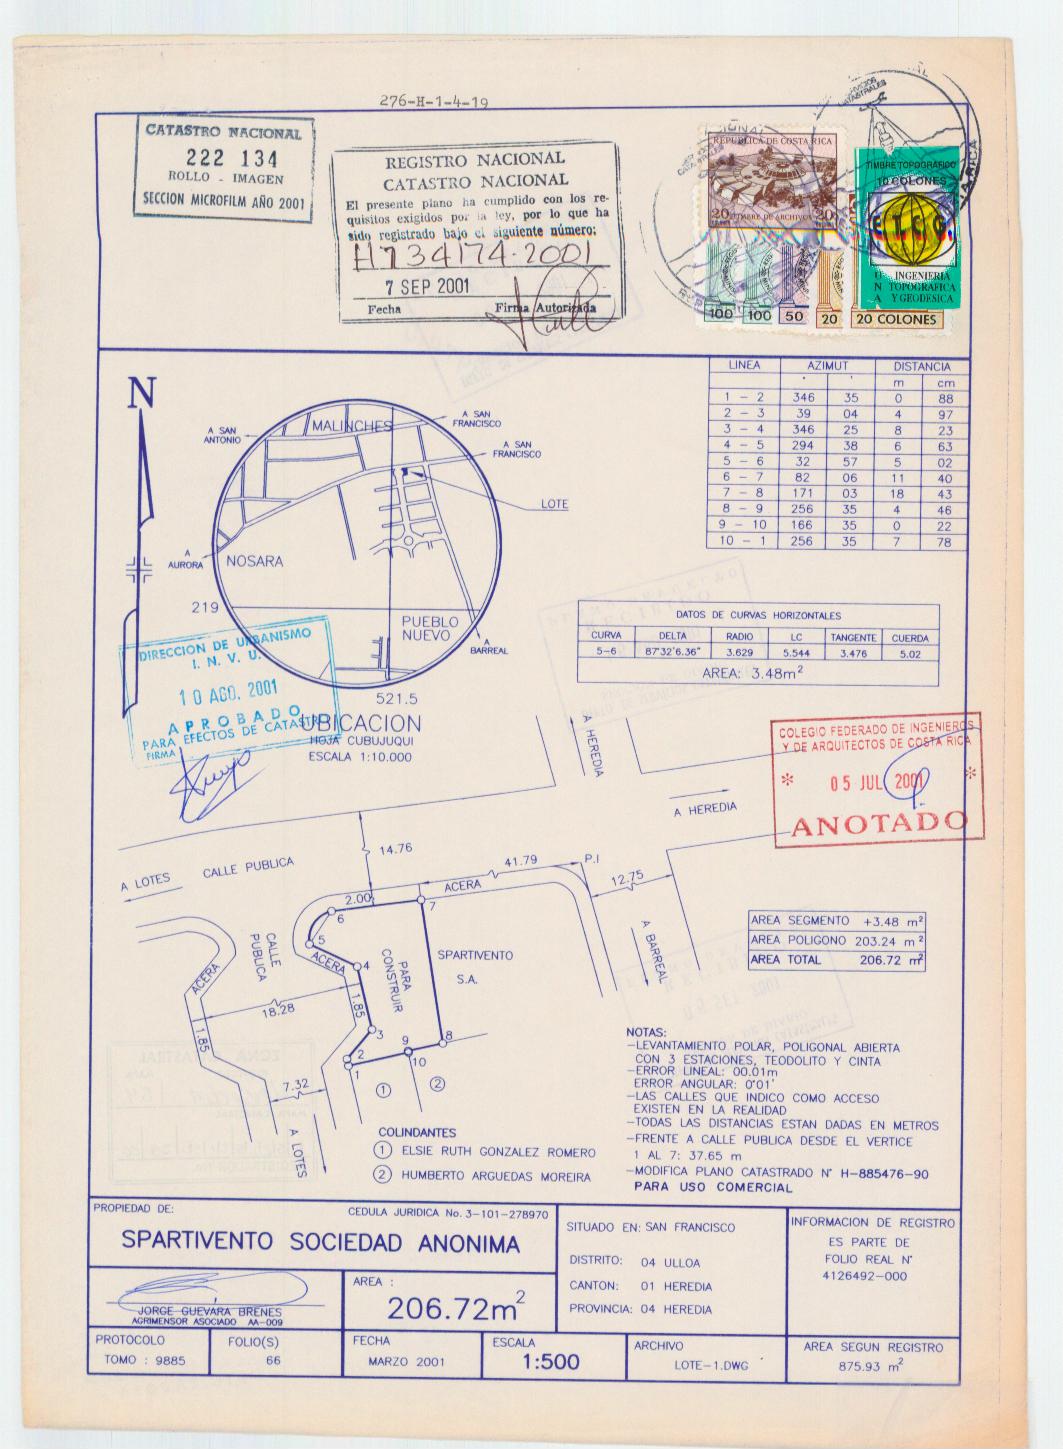 276-H-1-4-19
CATASTRO NACIONAL
222 134
ROLLO - IMAGEN
SECCION MICROFILM AÑO 2001
REGISTRO NACIONAL
CATASTRO NACIONAL
El presente plano ha cumplido con los re-
quisitos exigidos por la ley, por lo que ha
sido registrado bajo el siguiente número:
H734174-2001
7 SEP 2001
Fecha Firma Autorizada
REPUBLICA DE COSTA RICA
20 TIMBRE DE ARCHIVOS 20
100 100 50 20 20 COLONES
TIMBRE TOPOGRAFICO
10 COLONES
E.T.C.G.
U INGENIERIA
N TOPOGRAFICA
A Y GEODESICA
LINEA AZIMUT DISTANCIA
° ' m cm
1 - 2 346 35 0 88
2 - 3 39 04 4 97
3 - 4 346 25 8 23
4 - 5 294 38 6 63
5 - 6 32 57 5 02
6 - 7 82 06 11 40
7 - 8 171 03 18 43
8 - 9 256 35 4 46
9 - 10 166 35 0 22
10 - 1 256 35 7 78
N
A SAN
ANTONIO
MALINCHES
A SAN
FRANCISCO
A SAN
FRANCISCO
LOTE
A
AURORA
NOSARA
219
PUEBLO
NUEVO
A
BARREAL
521.5
UBICACION
HOJA CUBUJUQUI
ESCALA 1:10.000
DIRECCION DE URBANISMO
I. N. V. U.
10 AGO. 2001
APROBADO
PARA EFECTOS DE CATASTRO
FIRMA
DATOS DE CURVAS HORIZONTALES
CURVA DELTA RADIO LC TANGENTE CUERDA
5-6 87°32'6.36" 3.629 5.544 3.476 5.02
AREA: 3.48m²
COLEGIO FEDERADO DE INGENIEROS
Y DE ARQUITECTOS DE COSTA RICA
* 05 JUL 2001 *
ANOTADO
A HEREDIA
A HEREDIA
14.76
A LOTES
CALLE PUBLICA
41.79
P.I
ACERA
12.75
2.00
6
7
5
CALLE
PUBLICA
ACERA
4
PARA
CONSTRUIR
SPARTIVENTO
S.A.
A BARREAL
ACERA
18.28
1.85
1.85
3
9
8
2
1
10
7.32
1
2
A LOTES
AREA SEGMENTO +3.48 m²
AREA POLIGONO 203.24 m²
AREA TOTAL 206.72 m²
NOTAS:
-LEVANTAMIENTO POLAR, POLIGONAL ABIERTA
CON 3 ESTACIONES, TEODOLITO Y CINTA
-ERROR LINEAL: 00.01m
ERROR ANGULAR: 0°01'
-LAS CALLES QUE INDICO COMO ACCESO
EXISTEN EN LA REALIDAD
-TODAS LAS DISTANCIAS ESTAN DADAS EN METROS
-FRENTE A CALLE PUBLICA DESDE EL VERTICE
1 AL 7: 37.65 m
-MODIFICA PLANO CATASTRADO N° H-885476-90
PARA USO COMERCIAL
COLINDANTES
1 ELSIE RUTH GONZALEZ ROMERO
2 HUMBERTO ARGUEDAS MOREIRA
PROPIEDAD DE: CEDULA JURIDICA No. 3-101-278970
SPARTIVENTO SOCIEDAD ANONIMA
JORGE GUEVARA BRENES
AGRIMENSOR ASOCIADO AA-009
AREA :
206.72m²
SITUADO EN: SAN FRANCISCO
DISTRITO: 04 ULLOA
CANTON: 01 HEREDIA
PROVINCIA: 04 HEREDIA
INFORMACION DE REGISTRO
ES PARTE DE
FOLIO REAL N°
4126492-000
PROTOCOLO
TOMO : 9885
FOLIO(S)
66
FECHA
MARZO 2001
ESCALA
1:500
ARCHIVO
LOTE-1.DWG
AREA SEGUN REGISTRO
875.93 m²